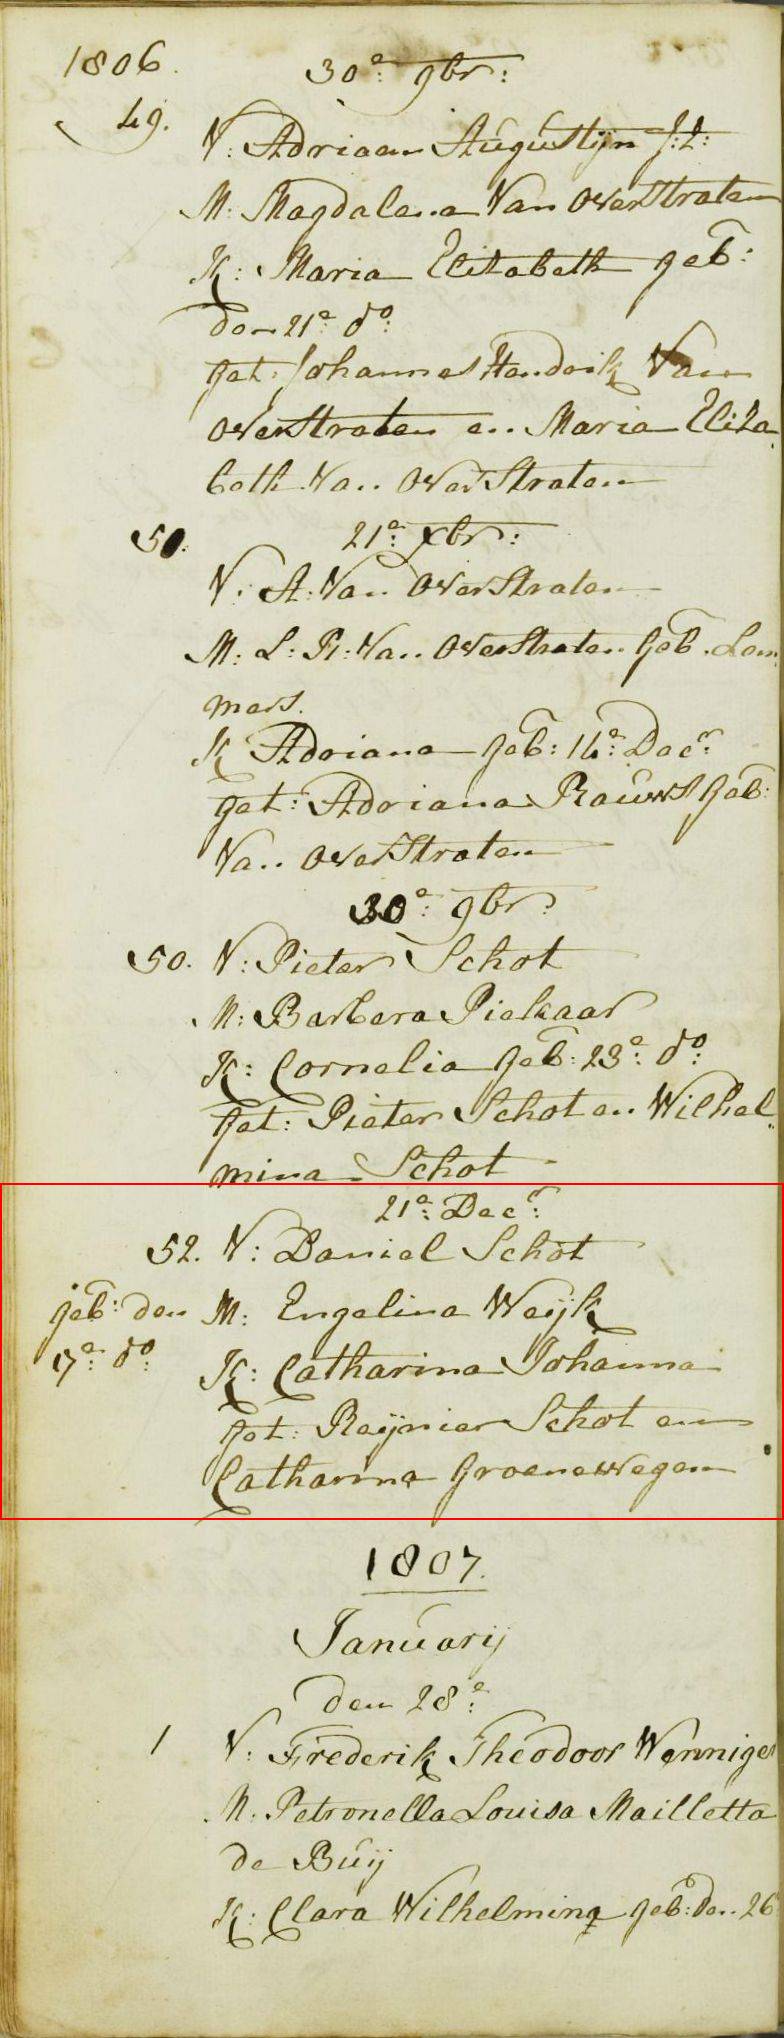 1806.
30e: 9br:
49. V: Adriaan Augustijn J:Z:
M: Magdalena Van Overstraten
K: Maria Elizabeth geb:
den 21e: do:
get: Johannes Hendrik Van
Overstraten en Maria Eliza
beth Van Overstraten
50. 21e: xbr:
V: A: Van Overstraten
M: L: P: Van Overstraten geb. Lam
mers.
K Adriana geb: 16e: Decr:
get: Adriana Rauws geb:
Van Overstraten
30e: 9br:
50. V: Pieter Schot
M: Barbera Piekaar
K: Cornelia geb: 23e: do:
get: Pieter Schot en Wilhel
mina Schot
21e: Decr:
52. V: Daniel Schot
geb: den M: Engelina Weijk
17e: do: K: Catharina Johanna
get: Reijnier Schot en
Catharina Groenewegen
1807.
Januarij
den 28e:
1 V: Frederik Theodoor Wenniger
M: Petronella Louisa Mailletta
de Buij
K: Clara Wilhelmina geb: den 26